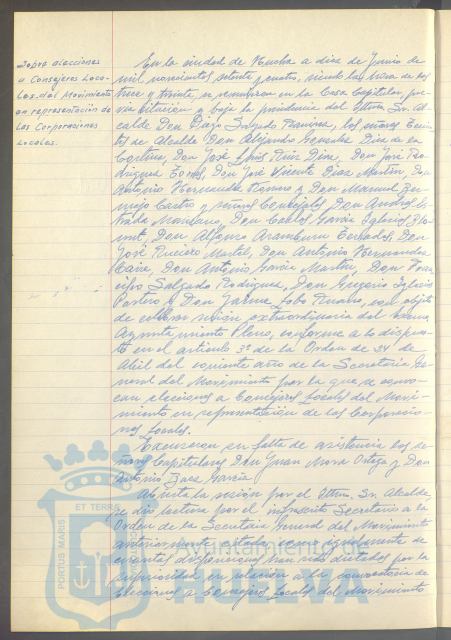 Sobre elecciones
a Consejeros Loca-
les del Movimiento
en representación de
las Corporaciones
Locales.
En la ciudad de Huelva a diez de Junio de
mil novecientos setenta y cuatro, siendo las horas de las
trece y treinta, se reunieron en la Casa Capitular, pre-
via citación y bajo la presidencia del Iltmo. Sr. Al-
calde Don Diego Salgado Ramírez, los señores Tenien-
tes de Alcalde Don Alejandro González Díaz de la
Cortina, Don José Luis Ruiz Díaz, Don José Ro-
dríguez Don José Vicente Díaz Martín, Don
Antonio Hernández Romero y Don Manuel Ber-
mejo Castro y señores Concejales Don Andrés Es-
trada Don Carlos García Iglesias
Don Alfonso Aramburu Terrades, Don
José Martel, Don Antonio Hernández
Don Antonio García Martín, Don
Salgado Rodríguez, Don Eugenio Iglesias
y Don Jaime Lobo con objeto
de celebrar sesión extraordinaria del Excmo.
Ayuntamiento Pleno, conforme a lo dispues-
to en el artículo 3º de la Orden de 24 de
Abril del corriente año de la Secretaría Ge-
neral del Movimiento por la que se convo-
can elecciones a Consejeros Locales del Movi-
miento en representación de las Corporacio-
nes Locales.
Excusaron su falta de asistencia los se-
ñores Capitulares Don Juan Mora Ortega y Don
Antonio Baez García
Abierta la sesión por el Iltmo. Sr. Alcalde,
se dio lectura por el infrascrito Secretario a la
Orden de la Secretaría General del Movimiento
anteriormente citada, como igualmente de
cuantas disposiciones han sido dictadas por la
superioridad en relación a la convocatoria de
Elecciones a Consejeros Locales del Movimiento
PORTUS MARIS ET TERRAE
Ayuntamiento de
HUELVA